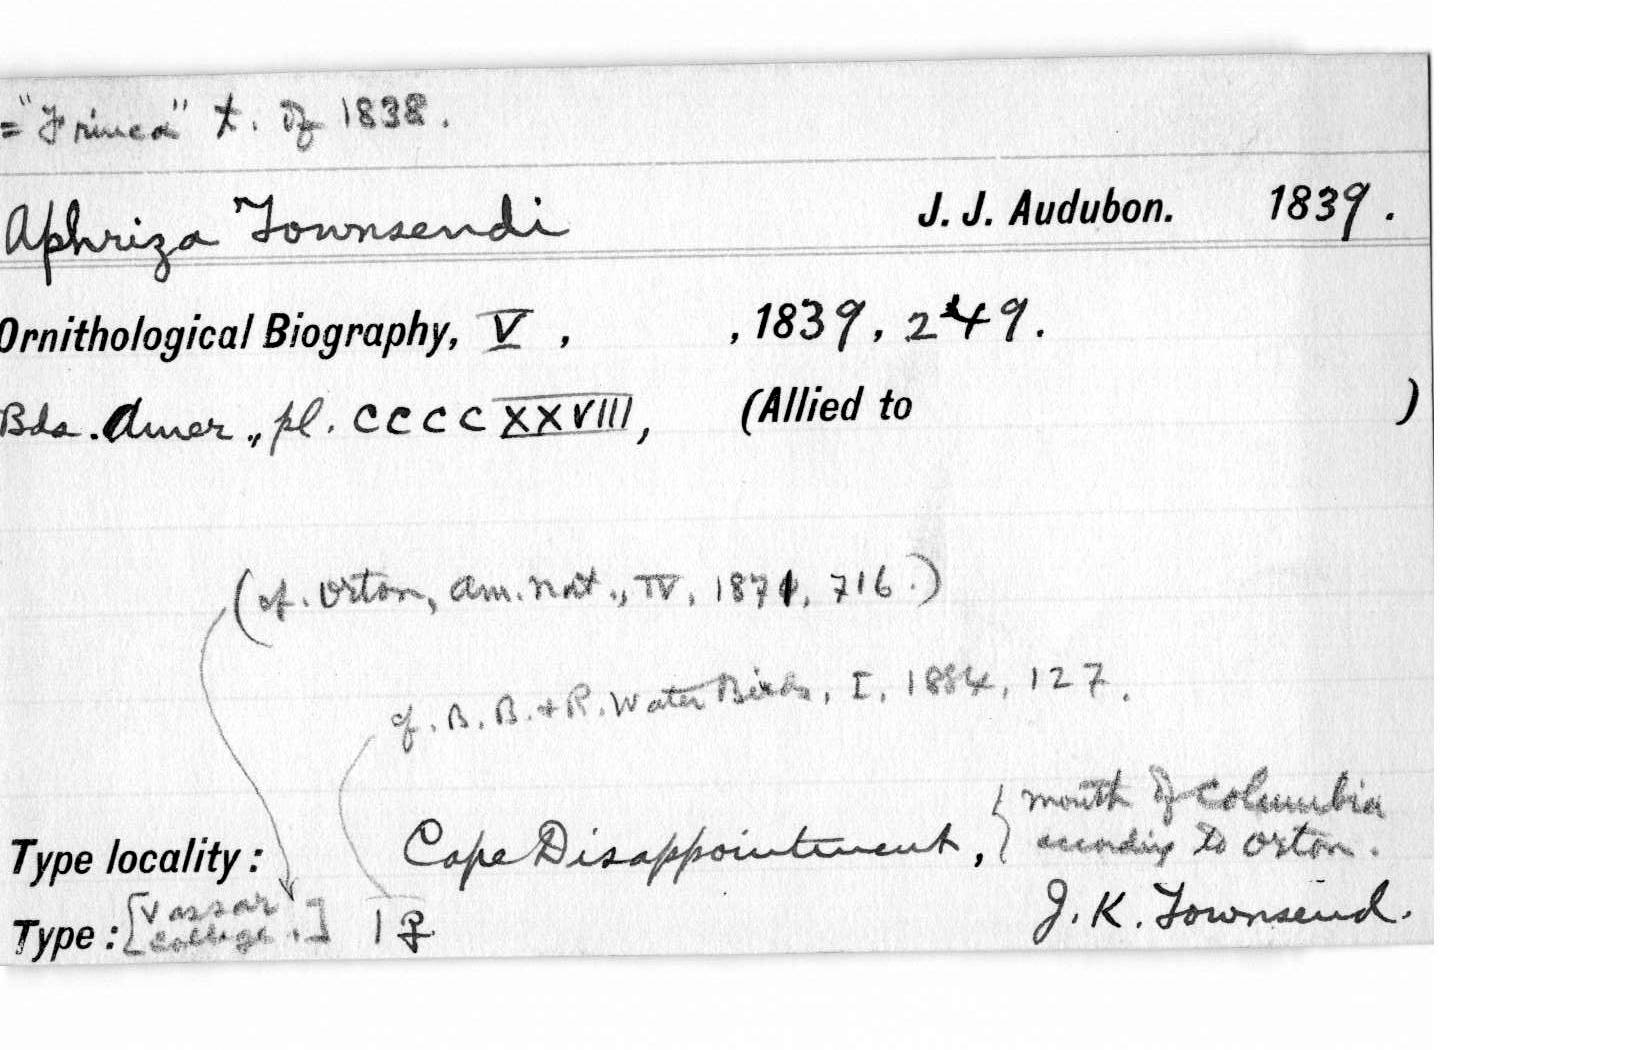 = "Trinca" t. of 1838.
Aphriza Townsendi J. J. Audubon. 1839.
Ornithological Biography, V, , 1839, 249.
Bds. Amer., pl. CCCCXXVIII, (Allied to )
(cf. Orton, Am. Nat., IV, 1871, 716.)
cf. B. B. + R. Water Birds, I, 1884, 127.
mouth of Columbia
Type locality: Cape Disappointment, { according to Orton.
Type: [Vassar College.] 1 ♀. J. K. Townsend.